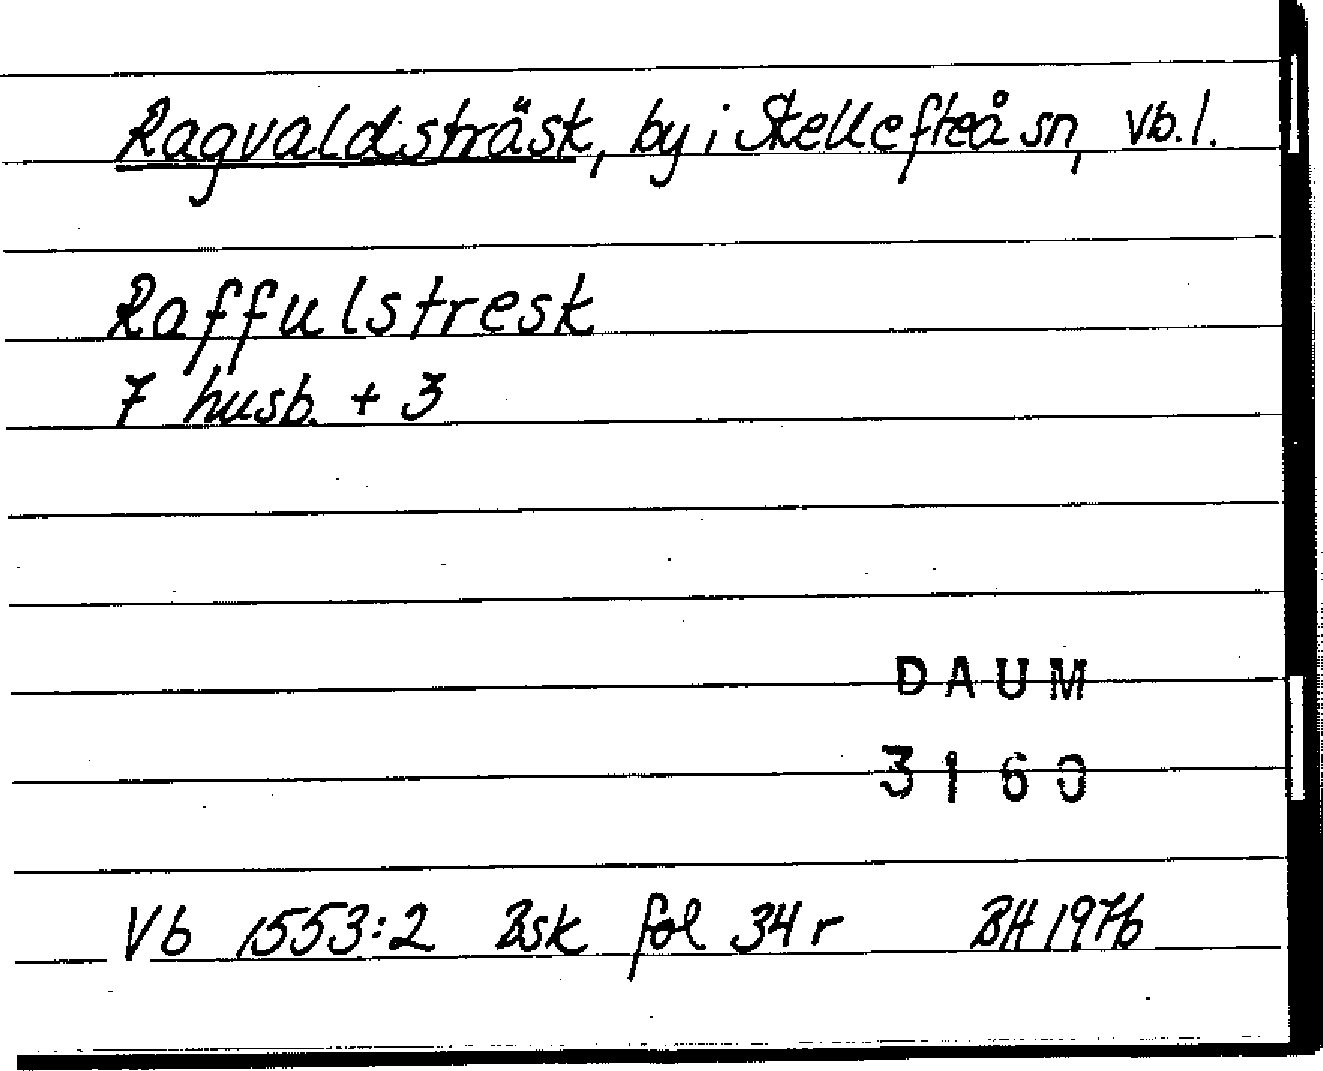 Ragvaldsträsk, by i Skellefteå sn, Vb. l.
Raffulstresk
7 husb. + 3
DAUM
3160
Vb 1553:2 Bsk fol 34 r BH 1976